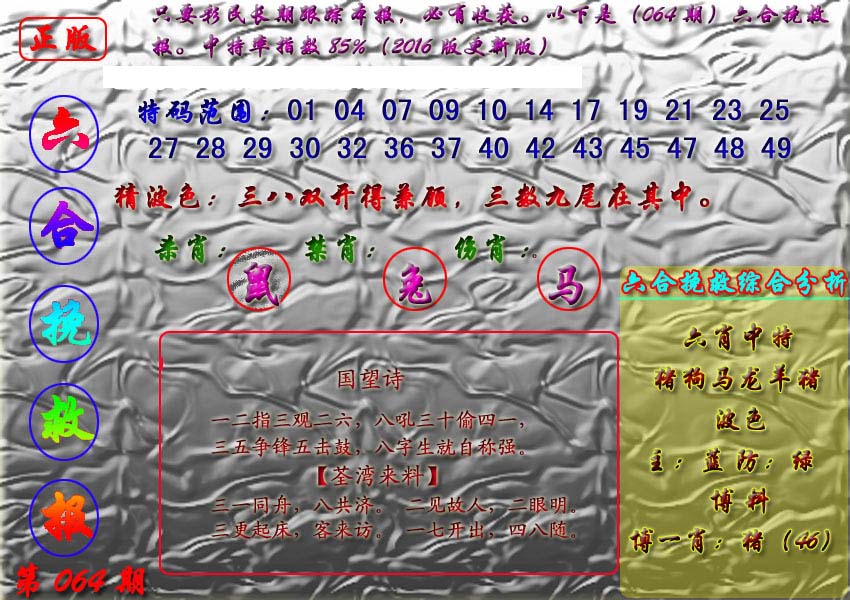 正版
只要彩民长期跟踪本报，必有收获。以下是（064期）六合挽救
报。中特率指数85%（2016版更新版）
六合挽救报
第064期
特码范围：01 04 07 09 10 14 17 19 21 23 25
27 28 29 30 32 36 37 40 42 43 45 47 48 49
猜波色：三八双开得兼顾，三数九尾在其中。
杀肖：鼠 禁肖：兔 伤肖：马
国望诗
一二指三观二六，八吼三十偷四一，
三五争锋五击鼓，八字生就自称强。
【荃湾来料】
三一同舟，八共济。 二见故人，二眼明。
三更起床，客来访。 一七开出，四八随。
六合挽救综合分析
六肖中特
猪狗马龙羊猪
波色
主：蓝防：绿
博料
博一肖：猪（46）